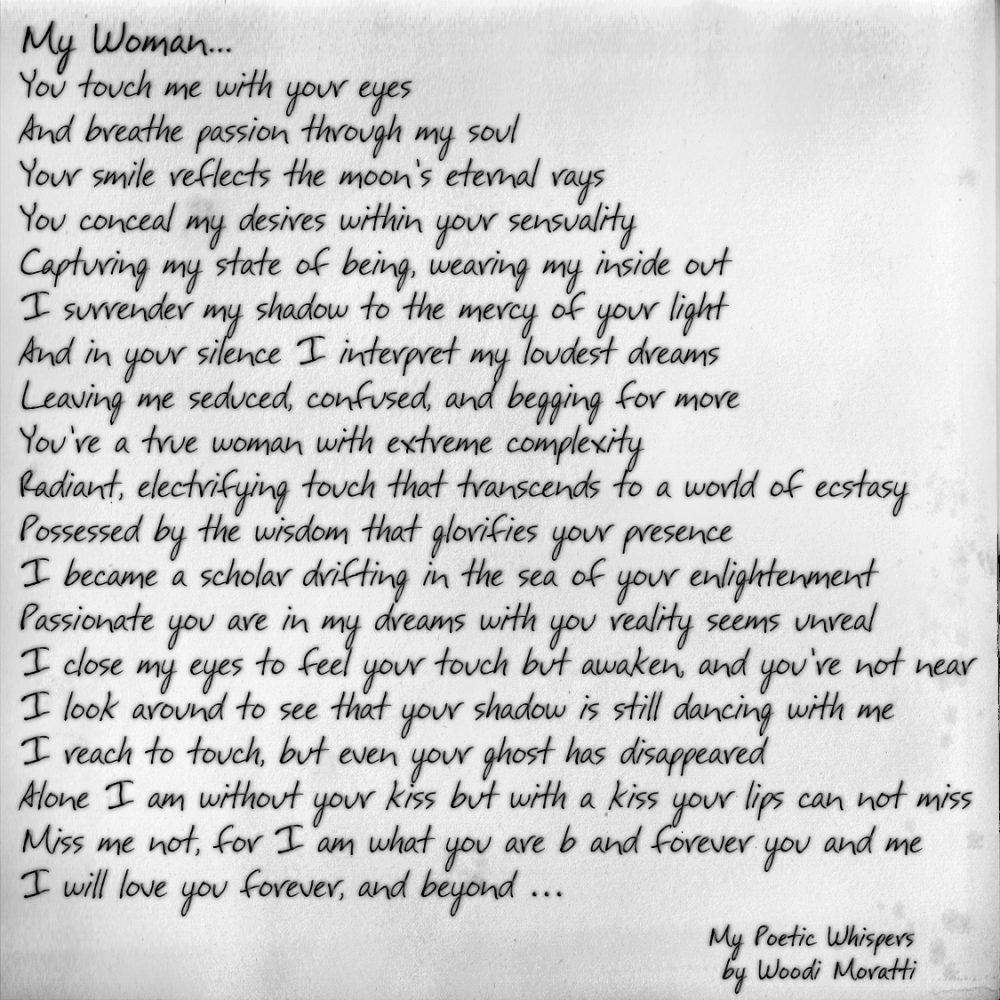 My Woman...
You touch me with your eyes
And breathe passion through my soul
Your smile reflects the moon's eternal rays
You conceal my desires within your sensuality
Capturing my state of being, wearing my inside out
I surrender my shadow to the mercy of your light
And in your silence I interpret my loudest dreams
Leaving me seduced, confused, and begging for more
You're a true woman with extreme complexity
Radiant, electrifying touch that transcends to a world of ecstasy
Possessed by the wisdom that glorifies your presence
I became a scholar drifting in the sea of your enlightenment
Passionate you are in my dreams with you reality seems unreal
I close my eyes to feel your touch but awaken, and you're not near
I look around to see that your shadow is still dancing with me
I reach to touch, but even your ghost has disappeared
Alone I am without your kiss but with a kiss your lips can not miss
Miss me not, for I am what you are b and forever you and me
I will love you forever, and beyond ...
My Poetic Whispers
by Woodi Moratti